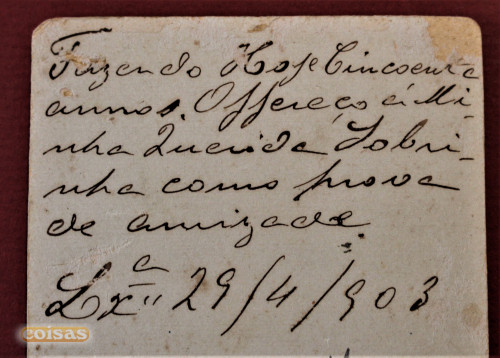 Fazendo Hoje Cincoenta
annos. Offereço á Mi-
nha Querida Sobri-
nha como prova
de amizade
Lxª 29/4/903
coisas